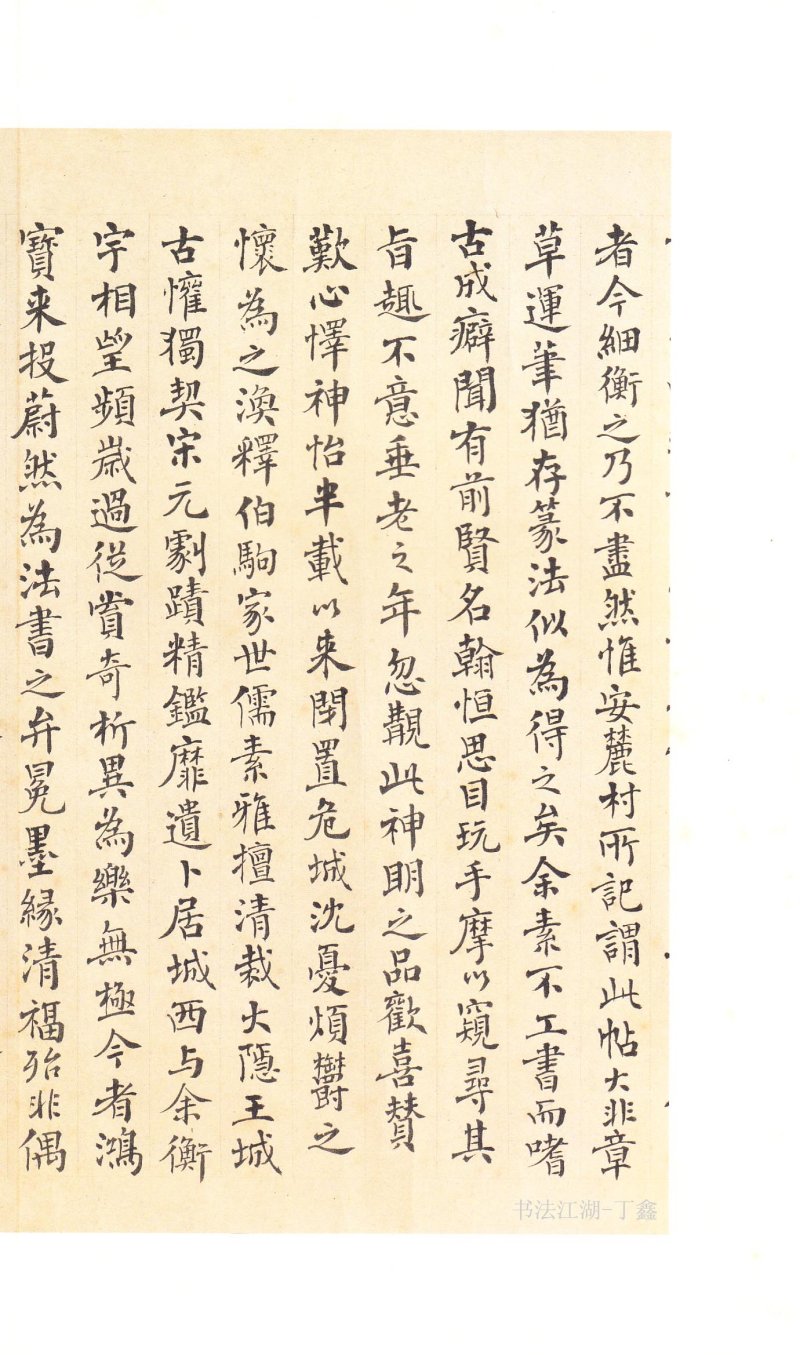 者今細衡之乃不盡然惟安麓村所記謂此帖大非章
草運筆猶存篆法似為得之矣余素不工書而嗜
古成癖聞有前賢名翰恒思目玩手摩以窺尋其
旨趣不意垂老之年忽覩此神明之品歡喜贊
歎心懌神怡半載以来閉置危城沈憂煩欝之
懷為之渙釋伯駒家世儒素雅擅清裁大隱王城
古懽獨契宋元劇蹟精鑑靡遺卜居城西与余衡
宇相望頻歲過從賞奇析異為樂無極今者鴻
寶来投蔚然為法書之弁冕墨緣清福殆非偶
书法江湖-丁鑫